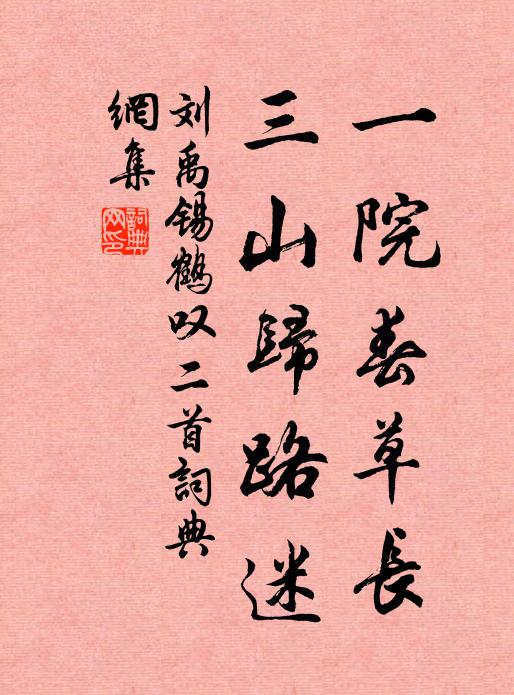 一院春草長
三山歸路迷
刘禹锡鶴叹二首詞典
網集
詞典
网印